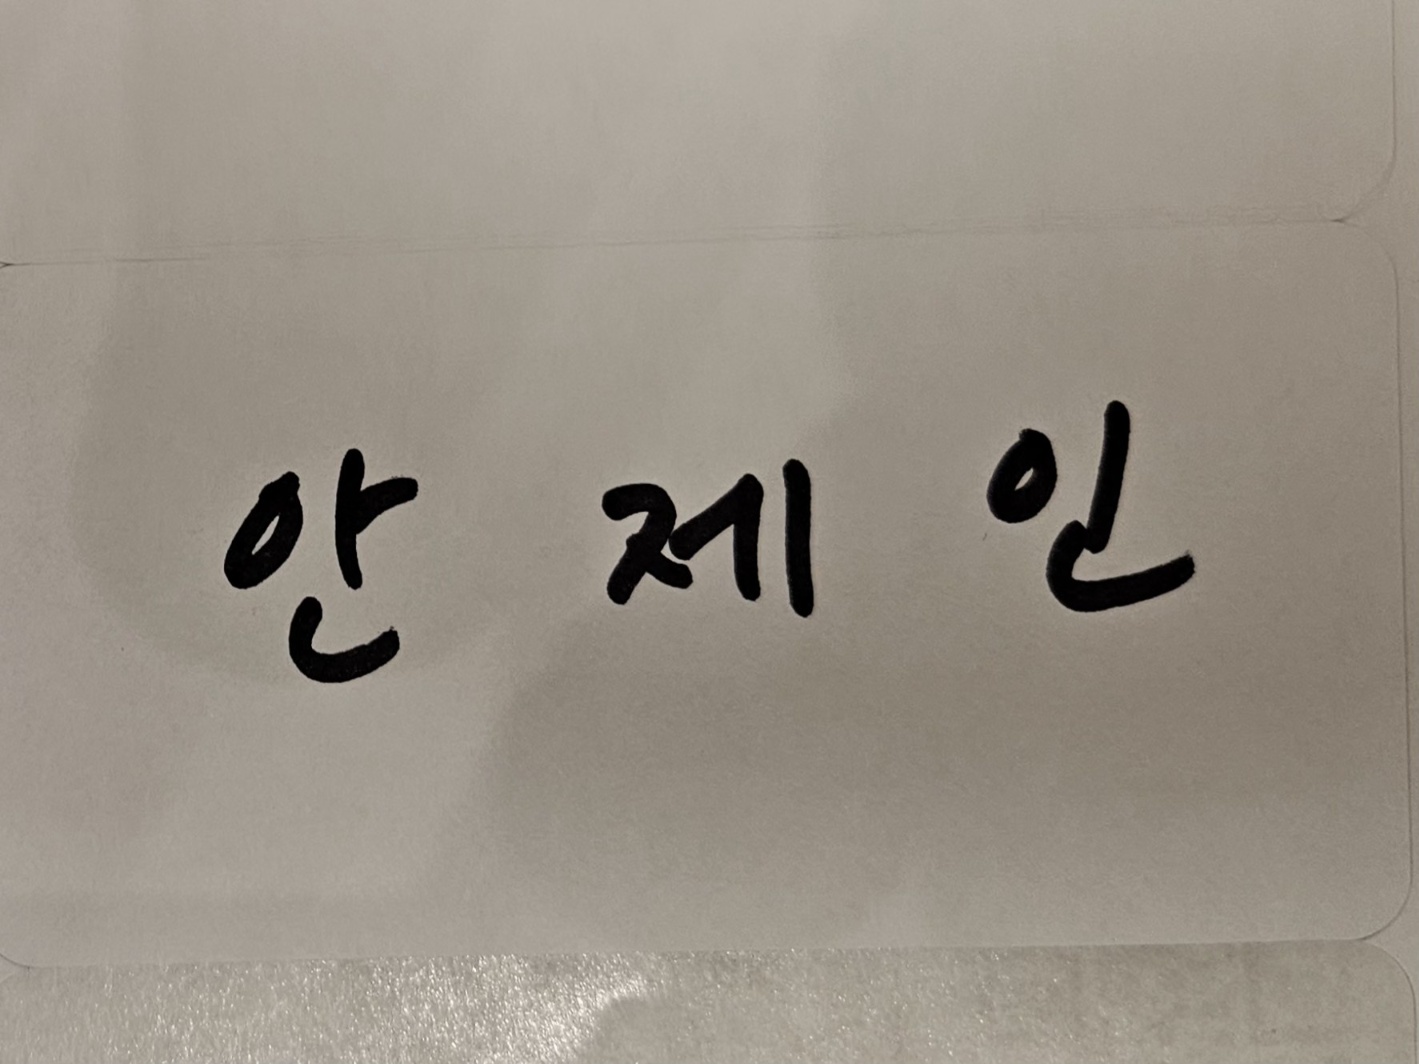 안 제 인